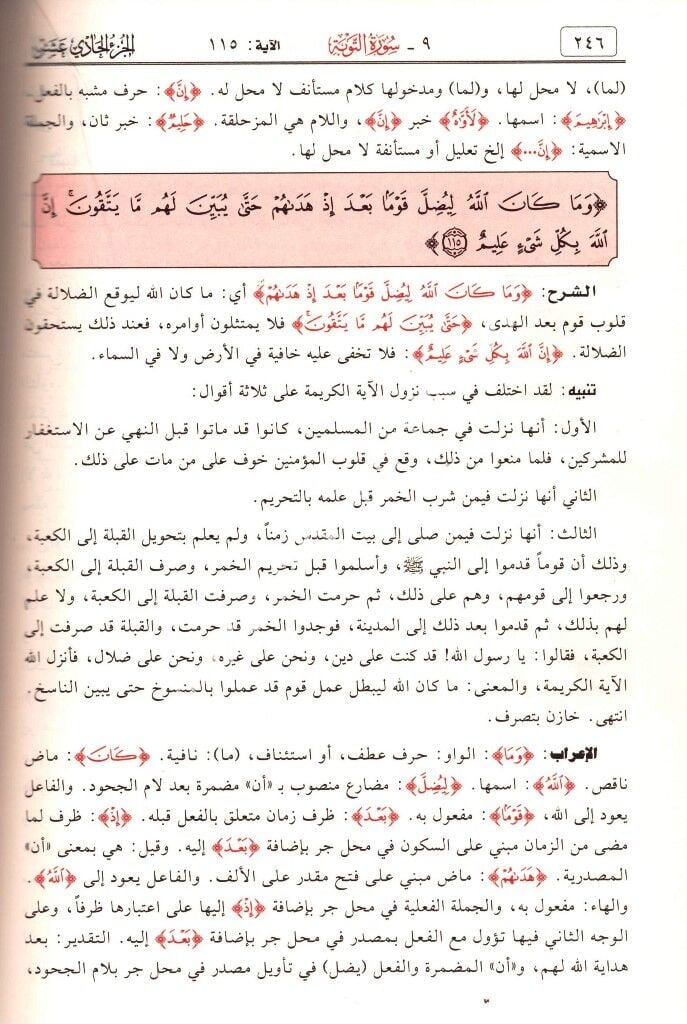 ٢٤٦ ٩ - سورة التوبة الآية: ١١٥ الجزء الحادي عشر
(لما)، لا محل لها، و(لما) ومدخولها كلام مستأنف لا محل له. ﴿إِنَّ﴾: حرف مشبه بالفعل.
﴿إِبْرَهِيمَ﴾: اسمها. ﴿لَأَوَّهٌ﴾ خبر ﴿إِنَّ﴾، واللام هي المزحلقة. ﴿حَلِيمٌ﴾: خبر ثان، والجملة
الاسمية: ﴿إِنَّ...﴾ إلخ تعليل أو مستأنفة لا محل لها.
﴿وَمَا كَانَ ٱللَّهُ لِيُضِلَّ قَوْمًا بَعْدَ إِذْ هَدَىٰهُمْ حَتَّىٰ يُبَيِّنَ لَهُم مَّا يَتَّقُونَۚ إِنَّ
ٱللَّهَ بِكُلِّ شَىْءٍ عَلِيمٌ ١١٥﴾
الشرح: ﴿وَمَا كَانَ ٱللَّهُ لِيُضِلَّ قَوْمًا بَعْدَ إِذْ هَدَىٰهُمْ﴾ أي: ما كان الله ليوقع الضلالة في
قلوب قوم بعد الهدى، ﴿حَتَّىٰ يُبَيِّنَ لَهُم مَّا يَتَّقُونَۚ﴾ فلا يمتثلون أوامره، فعند ذلك يستحقون
الضلالة. ﴿إِنَّ ٱللَّهَ بِكُلِّ شَىْءٍ عَلِيمٌ﴾: فلا تخفى عليه خافية في الأرض ولا في السماء.
تنبيه: لقد اختلف في سبب نزول الآية الكريمة على ثلاثة أقوال:
الأول: أنها نزلت في جماعة من المسلمين، كانوا قد ماتوا قبل النهي عن الاستغفار
للمشركين، فلما منعوا من ذلك، وقع في قلوب المؤمنين خوف على من مات على ذلك.
الثاني أنها نزلت فيمن شرب الخمر قبل علمه بالتحريم.
الثالث: أنها نزلت فيمن صلى إلى بيت المقدس زمناً، ولم يعلم بتحويل القبلة إلى الكعبة،
وذلك أن قوماً قدموا إلى النبي ﷺ، وأسلموا قبل تحريم الخمر، وصرف القبلة إلى الكعبة،
ورجعوا إلى قومهم، وهم على ذلك، ثم حرمت الخمر، وصرفت القبلة إلى الكعبة، ولا علم
لهم بذلك، ثم قدموا بعد ذلك إلى المدينة، فوجدوا الخمر قد حرمت، والقبلة قد صرفت إلى
الكعبة، فقالوا: يا رسول الله! قد كنت على دين، ونحن على غيره، ونحن على ضلال، فأنزل الله
الآية الكريمة، والمعنى: ما كان الله ليبطل عمل قوم قد عملوا بالمنسوخ حتى يبين الناسخ.
انتهى. خازن بتصرف.
الإعراب: ﴿وَمَا﴾: الواو: حرف عطف، أو استئناف، (ما): نافية. ﴿كَانَ﴾: ماض
ناقص. ﴿ٱللَّهُ﴾: اسمها. ﴿لِيُضِلَّ﴾: مضارع منصوب بـ «أن» مضمرة بعد لام الجحود. والفاعل
يعود إلى الله، ﴿قَوْمًا﴾: مفعول به. ﴿بَعْدَ﴾: ظرف زمان متعلق بالفعل قبله. ﴿إِذْ﴾: ظرف لما
مضى من الزمان مبني على السكون في محل جر بإضافة ﴿بَعْدَ﴾ إليه. وقيل: هي بمعنى «أن»
المصدرية. ﴿هَدَىٰهُمْ﴾: ماض مبني على فتح مقدر على الألف. والفاعل يعود إلى ﴿ٱللَّهُ﴾.
والهاء: مفعول به، والجملة الفعلية في محل جر بإضافة ﴿إِذْ﴾ إليها على اعتبارها ظرفاً، وعلى
الوجه الثاني فيها تؤول مع الفعل بمصدر في محل جر بإضافة ﴿بَعْدَ﴾ إليه. التقدير: بعد
هداية الله لهم، و«أن» المضمرة والفعل (يضل) في تأويل مصدر في محل جر بلام الجحود،